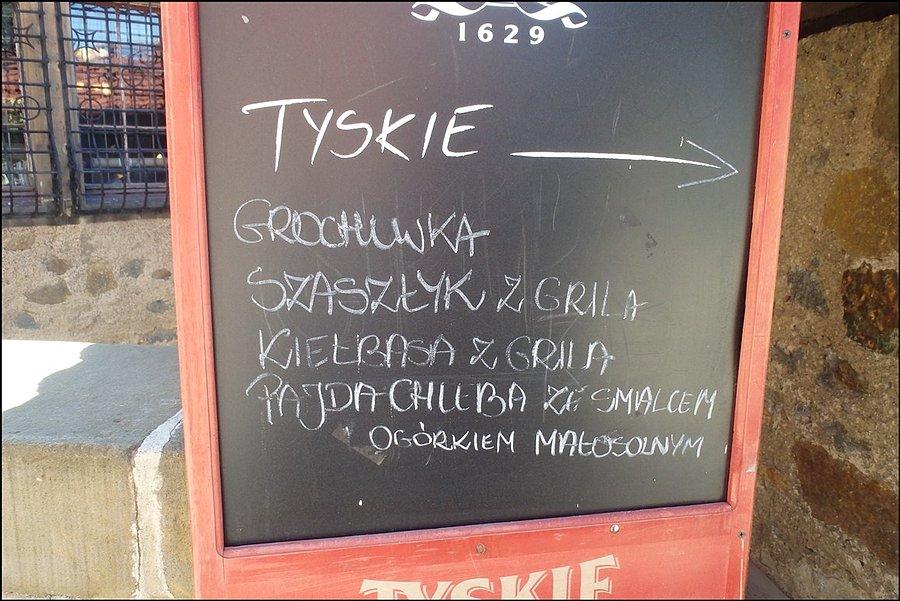 1629
TYSKIE
GROCHUWKA
SZASZŁYK Z GRILA
KIEŁBASA Z GRILA
PAJDA CHLEBA ZE SMALCEM
OGÓRKIEM MAŁOSOLNYM
TYSKIE